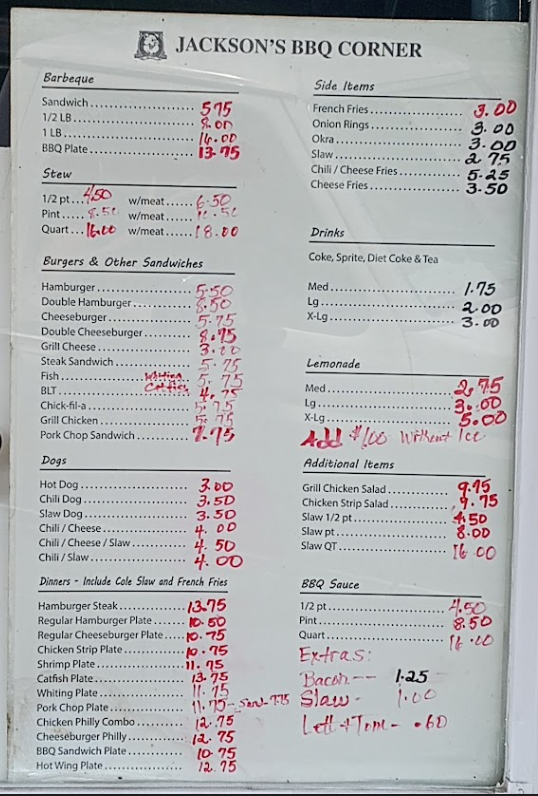 JACKSON'S BBQ CORNER
Barbeque
Sandwich 5.75
1/2 LB 8.00
1 LB 16.00
BBQ Plate 13.75
Stew
1/2 pt 4.50 w/meat 6.50
Pint 8.50 w/meat 10.50
Quart 16.00 w/meat 18.00
Burgers & Other Sandwiches
Hamburger 5.50
Double Hamburger 8.50
Cheeseburger 5.75
Double Cheeseburger 8.75
Grill Cheese 3.00
Steak Sandwich 5.75
Fish Whiting Catfish 5.75
BLT 4.75
Chick-fil-a 5.75
Grill Chicken 5.75
Pork Chop Sandwich 7.75
Dogs
Hot Dog 3.00
Chili Dog 3.50
Slaw Dog 3.50
Chili / Cheese 4.00
Chili / Cheese / Slaw 4.50
Chili / Slaw 4.00
Dinners - Include Cole Slaw and French Fries
Hamburger Steak 13.75
Regular Hamburger Plate 10.50
Regular Cheeseburger Plate 10.75
Chicken Strip Plate 10.75
Shrimp Plate 11.75
Catfish Plate 13.75
Whiting Plate 11.75
Pork Chop Plate 11.75 - Sand - 7.75
Chicken Philly Combo 12.75
Cheeseburger Philly 12.75
BBQ Sandwich Plate 10.75
Hot Wing Plate 12.75
Side Items
French Fries 3.00
Onion Rings 3.00
Okra 3.00
Slaw 2.75
Chili / Cheese Fries 5.25
Cheese Fries 3.50
Drinks
Coke, Sprite, Diet Coke & Tea
Med 1.75
Lg 2.00
X-Lg 3.00
Lemonade
Med 2.75
Lg 3.00
X-Lg 5.00
Add $1.00 Without Ice
Additional Items
Grill Chicken Salad 9.75
Chicken Strip Salad 9.75
Slaw 1/2 pt 4.50
Slaw pt 8.00
Slaw QT 16.00
BBQ Sauce
1/2 pt 4.50
Pint 8.50
Quart 16.00
Extras:
Bacon -- 1.25
Slaw - 1.00
Lett + Tom - .60